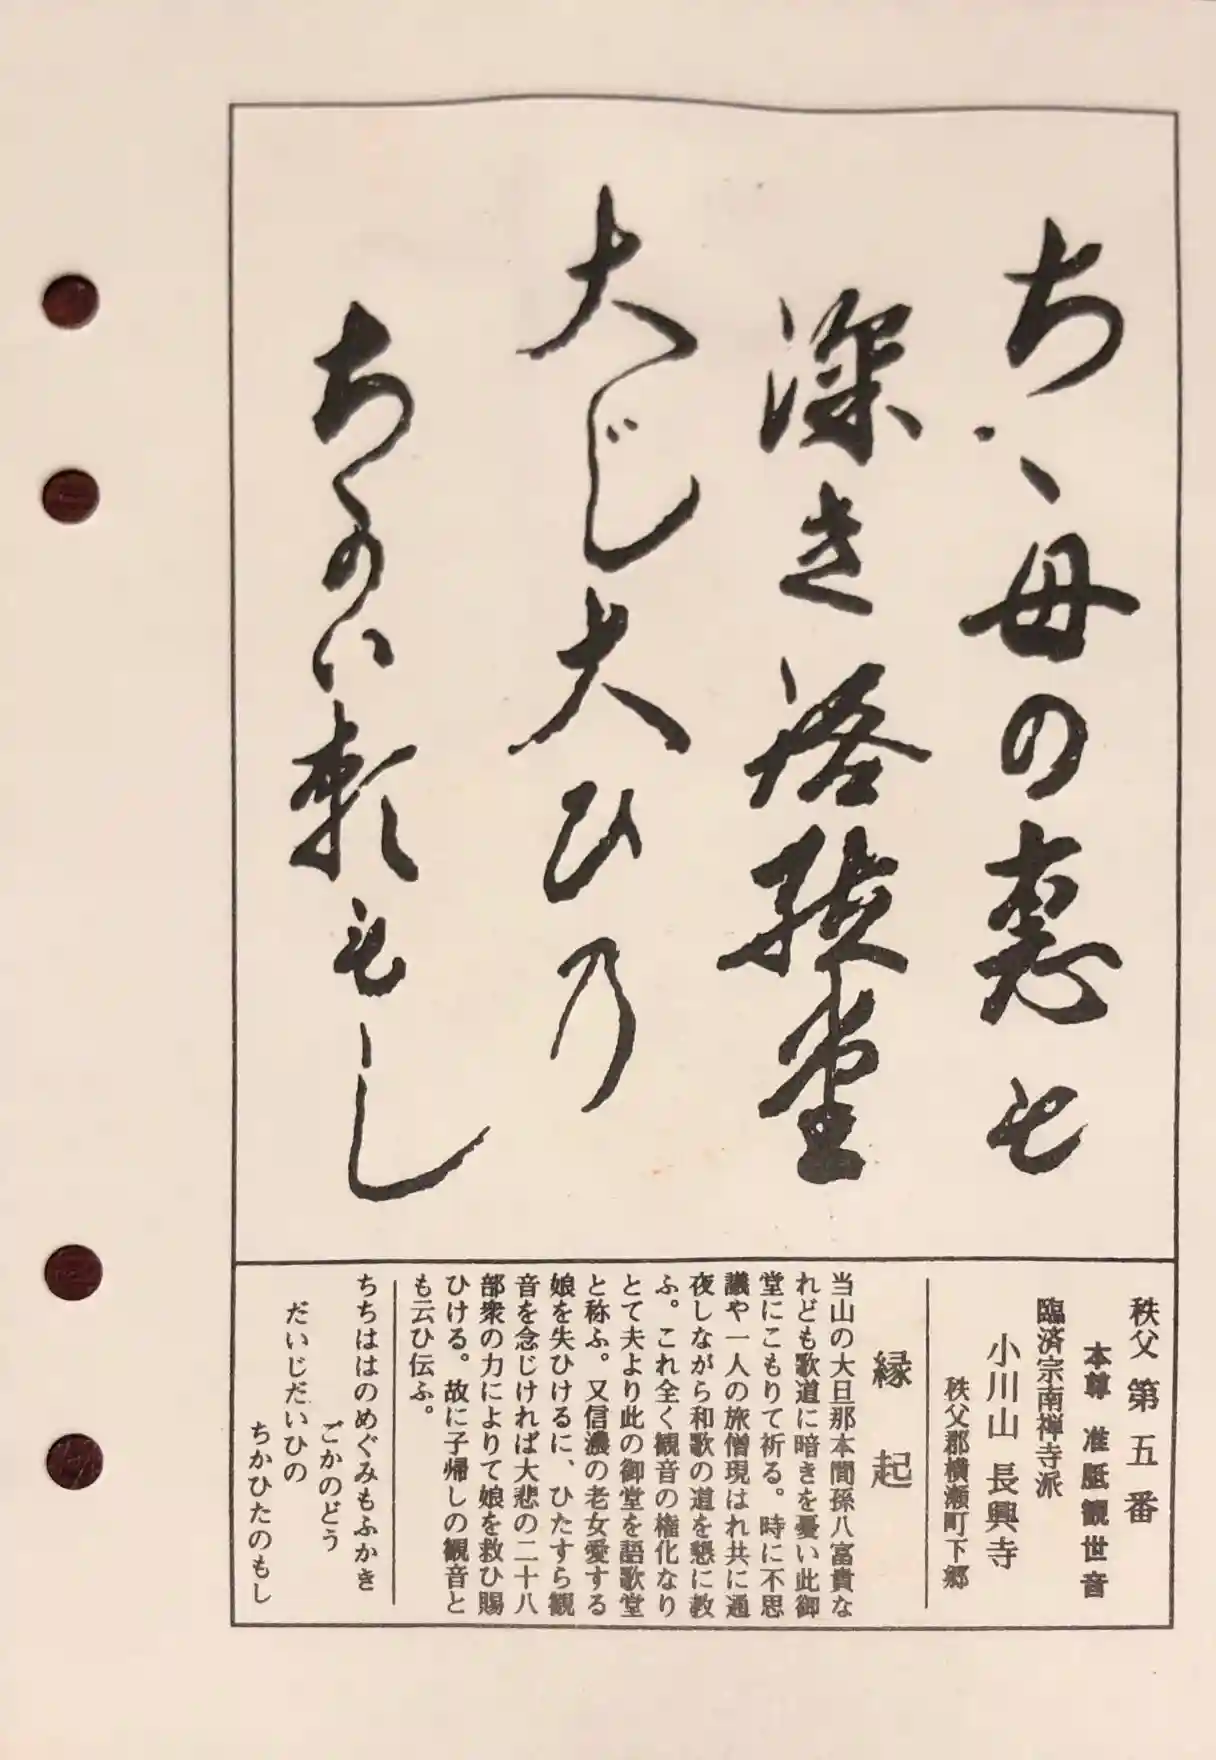 ちゝ母の恵も
深き語歌堂
大じ大ひの
ちかひ頼もし
秩父第五番
本尊 准胝観世音
臨済宗南禅寺派
小川山 長興寺
秩父郡横瀬町下郷
縁起
当山の大旦那本間孫八富貴な
れども歌道に暗きを憂い此御
堂にこもりて祈る。時に不思
議や一人の旅僧現はれ共に通
夜しながら和歌の道を懇に教
ふ。これ全く観音の権化なり
とて夫より此の御堂を語歌堂
と称ふ。又信濃の老女愛する
娘を失ひけるに、ひたすら観
音を念じければ大悲の二十八
部衆の力によりて娘を救ひ賜
ひける。故に子帰しの観音と
も云ひ伝ふ。
ちちははのめぐみもふかき
ごかのどう
だいじだいひの
ちかひたのもし